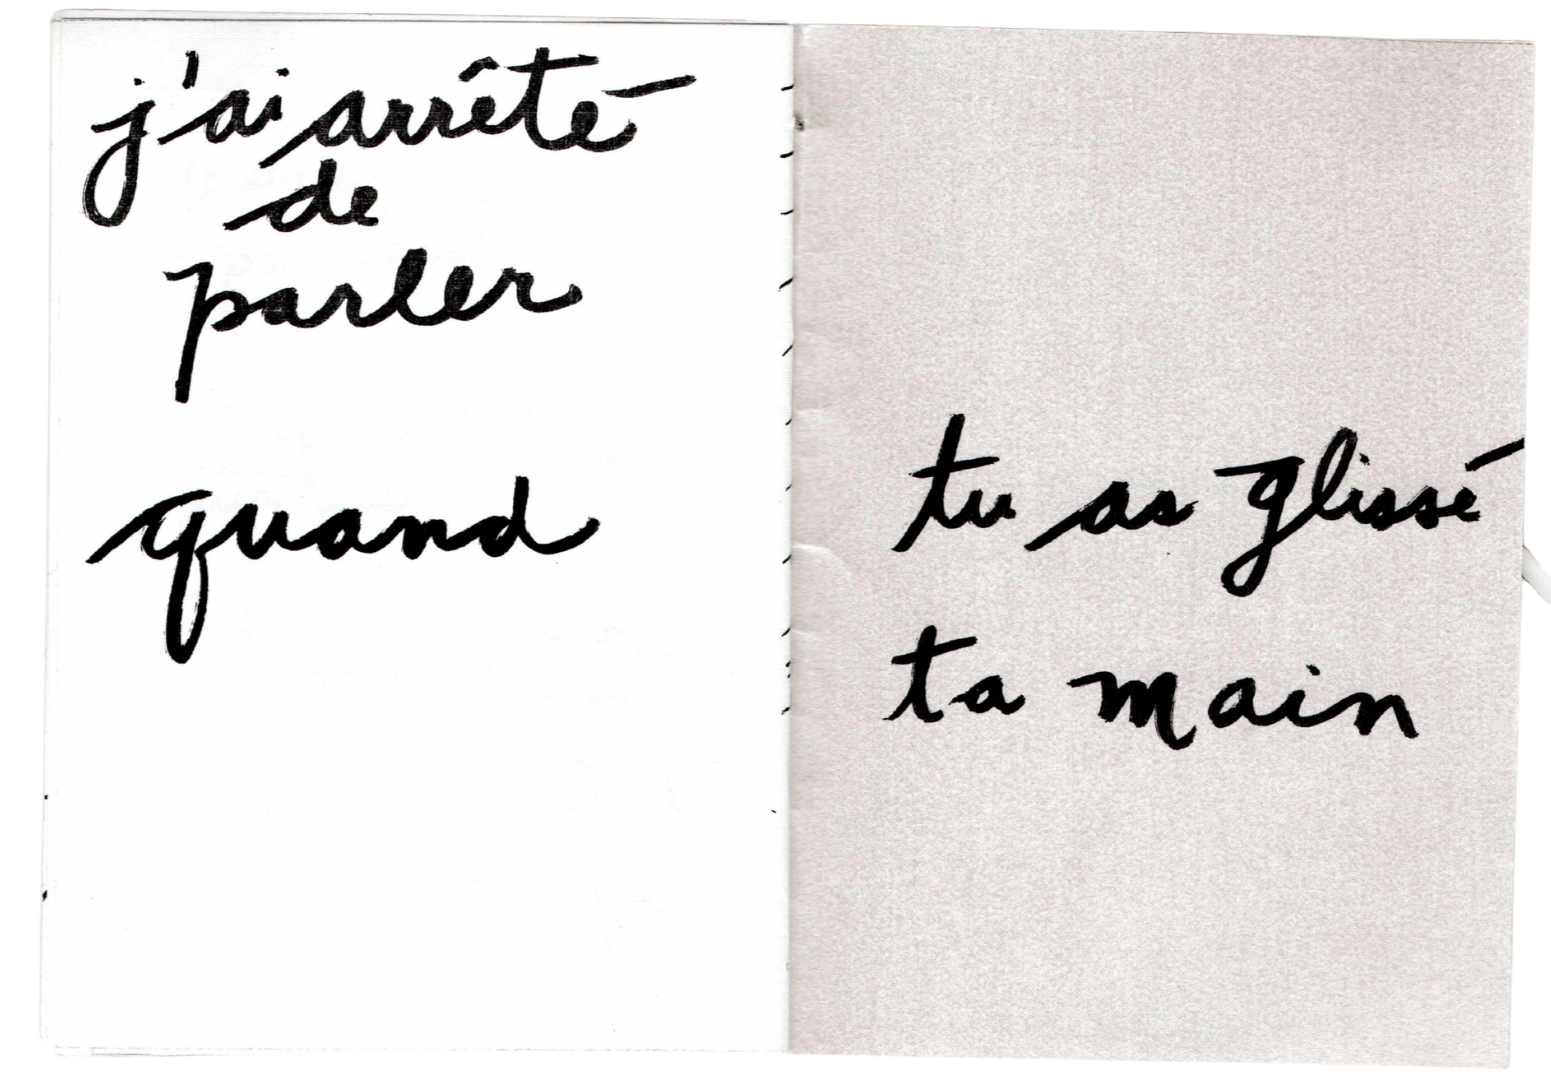 j'ai arrêté
de
parler
quand
tu as glissé
ta main